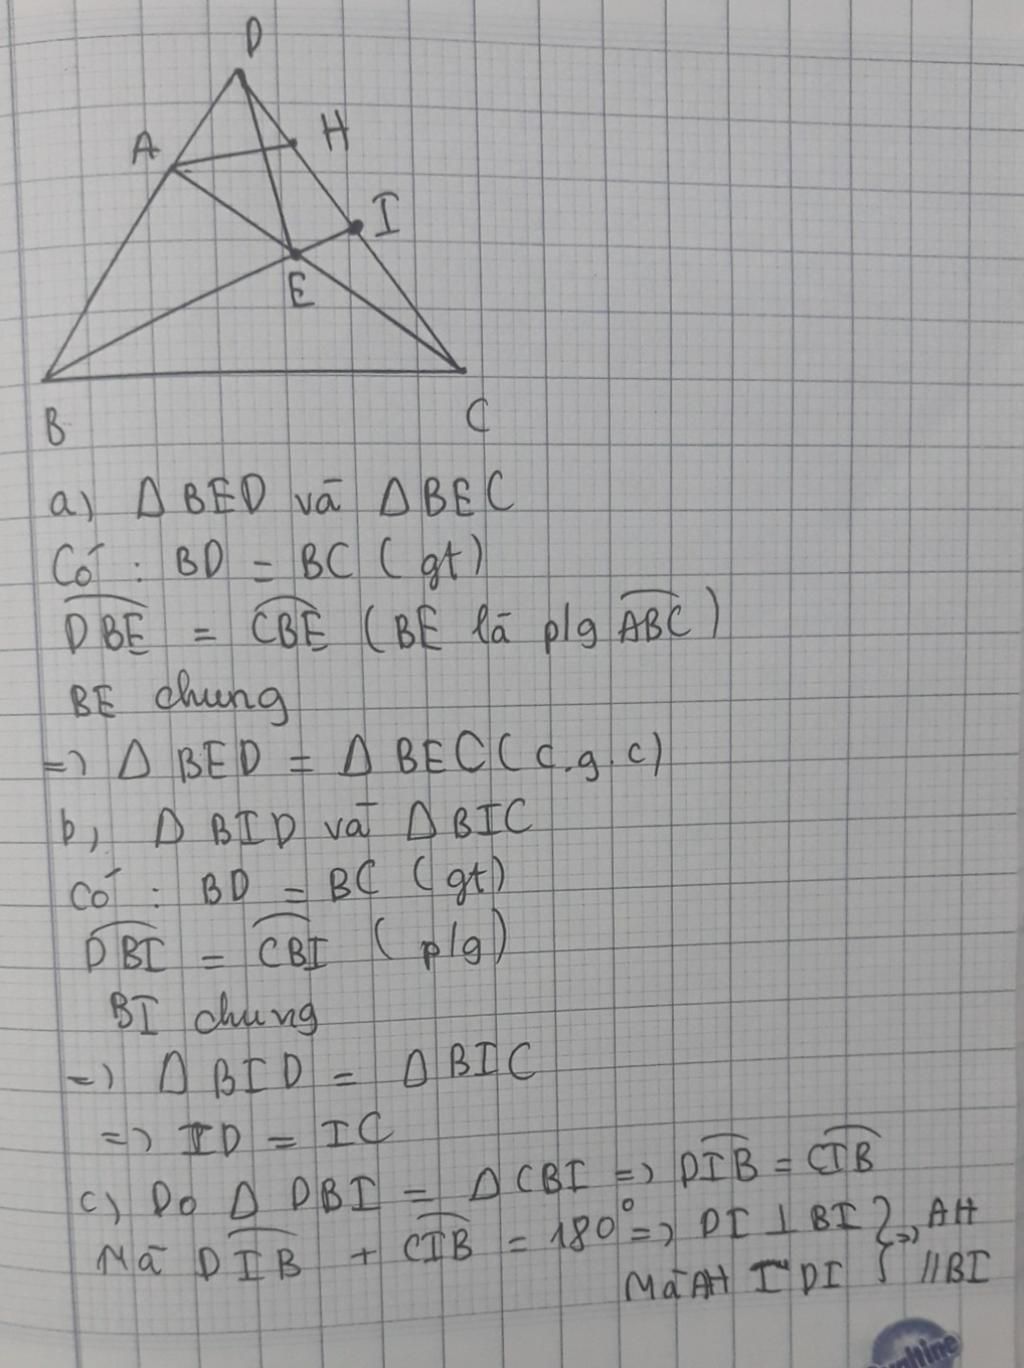 D
A
H
I
E
B
C
a) Δ BED và Δ BEC
Có : BD = BC (gt)
DBE = CBE (BE là p/g ABC)
BE chung
=> Δ BED = Δ BEC (c.g.c)
b, Δ BID và Δ BIC
Có : BD = BC (gt)
DBI = CBI (p/g)
BI chung
=> Δ BID = Δ BIC
=> ID = IC
c) Do Δ DBI = Δ CBI => DIB = CIB
Mà DIB + CIB = 180° => DI ⊥ BI } => AH
Mà AH ⊥ DI } // BI